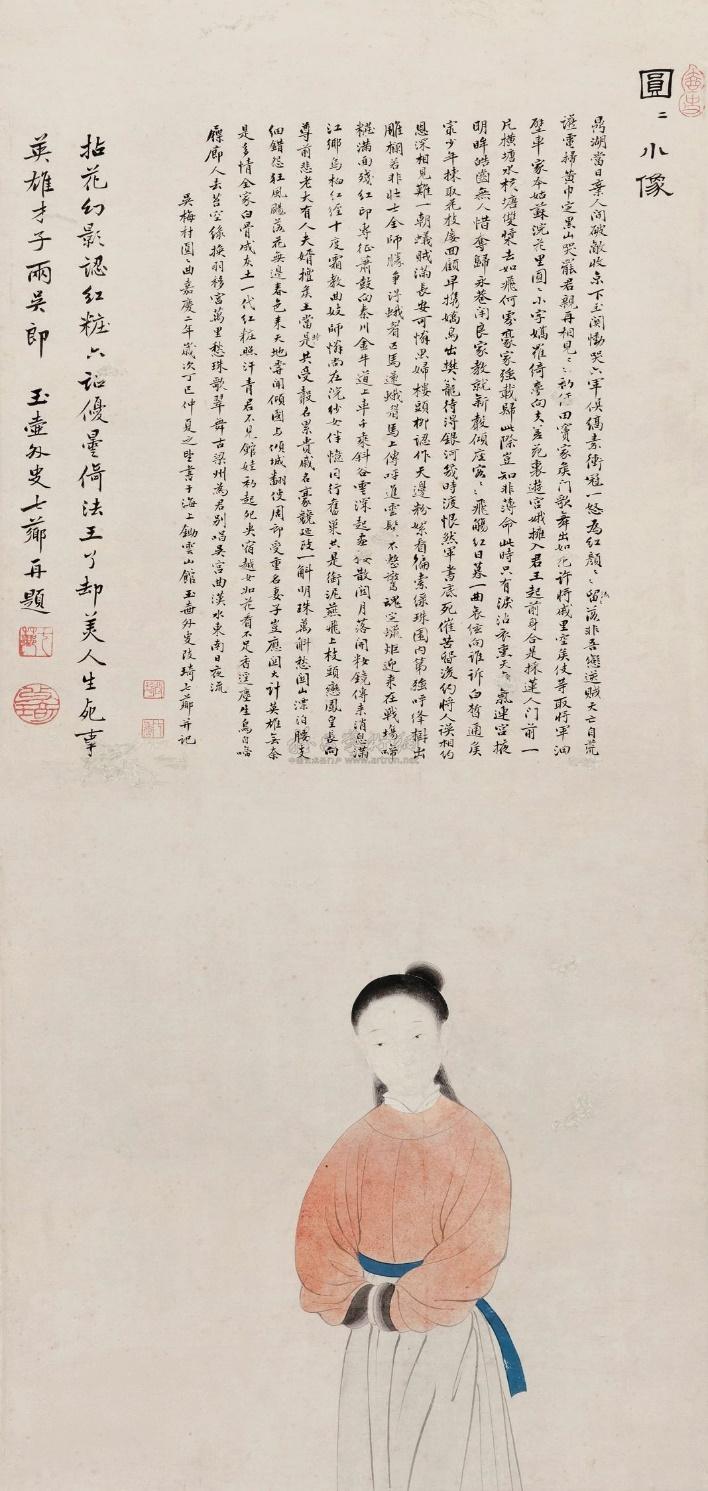 圓〻小像
鼎湖當日棄人間破敵收京下玉關慟哭六軍俱縞素衝冠一怒為紅顏〻〻留落非吾戀逆賊天亡自荒
讌電掃黃巾定黑山哭罷君親再相見〻〻初經田竇家矦門歌舞出如花許將戚里空矦伎等取將軍油
壁車家本姑蘇浣花里圓〻小字嬌羅綺夢向夫差苑裏遊宮娥擁入君王起前身合是採蓮人門前一
片橫塘水橫塘雙槳去如飛何處豪家強載歸此際豈知非薄命此時只有淚沾衣熏天〻氣連宮掖
明眸皓齒無人惜奪歸永巷閉良家教就新聲傾座客〻飛觴紅日暮一曲哀絃向誰訴白皙通矦
最少年揀取花枝屢回顧早攜嬌鳥出樊籠待得銀河幾時渡恨煞軍書底死催苦留後約將人誤相約
恩深相見難一朝蟻賊滿長安可憐思婦樓頭柳認作天邊粉絮看徧索綠珠圍內第強呼絳樹出
雕欄若非壯士全師勝爭得蛾眉匹馬還蛾眉馬上傳呼進雲鬟不整驚魂定蠟炬迎來在戰場啼
糚滿面殘紅印專征蕭鼓向秦川金牛道上車千乘斜谷雲深起畫樓散關月落開粧鏡傳來消息滿
江鄉烏桕紅經十度霜教曲妓師憐尚在浣紗女伴憶同行舊巢共是銜泥燕飛上枝頭變鳳皇長向
尊前悲老大有人夫婿擅矦王當時是共受聲名累貴戚名豪競延致一斛明珠萬斛愁關山漂泊腰支
細錯怨狂風颺落花無邊春色來天地嘗聞傾國與傾城翻使周郎受重名妻子豈應關大計英雄無奈
是多情全家白骨成灰土一代紅粧照汗青君不見館娃初起鴛央宿越女如花看不足香逕塵生鳥自啼
屧廊人去苔空綠換羽移宮萬里愁珠歌翠舞古梁州為君別唱吳宮曲漢水東南日夜流
吳梅村圓〻曲嘉慶二年歲次丁巳仲夏之望書于海上鋤雲山館玉壺外史改琦七薌并記
拈花幻影認紅粧六詔優曇倚法王了却美人生死事
英雄才子兩吳郎 玉壺外史七薌再題